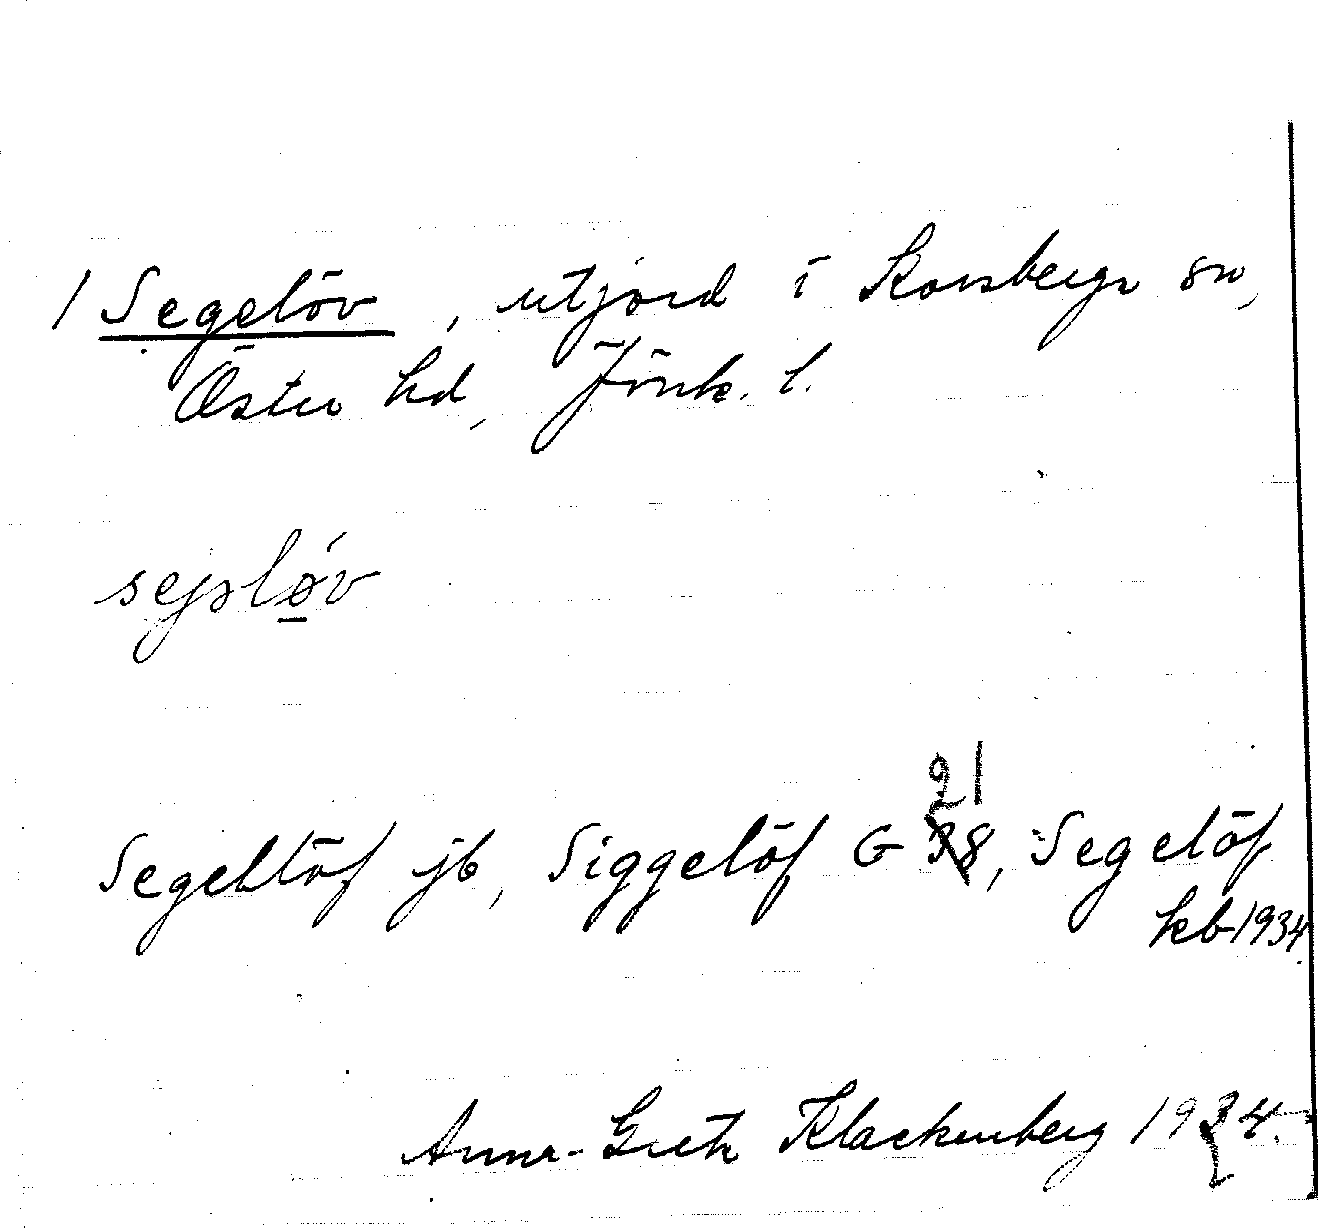 / Segelöv, utjord i Korsberga sn,
Östra hd, Jönk. l.
sejsløv
21
Segelslöf jb, Siggelöf G 38, Segelöf
kb 1934
Anna-Greta Klackenberg 1934.